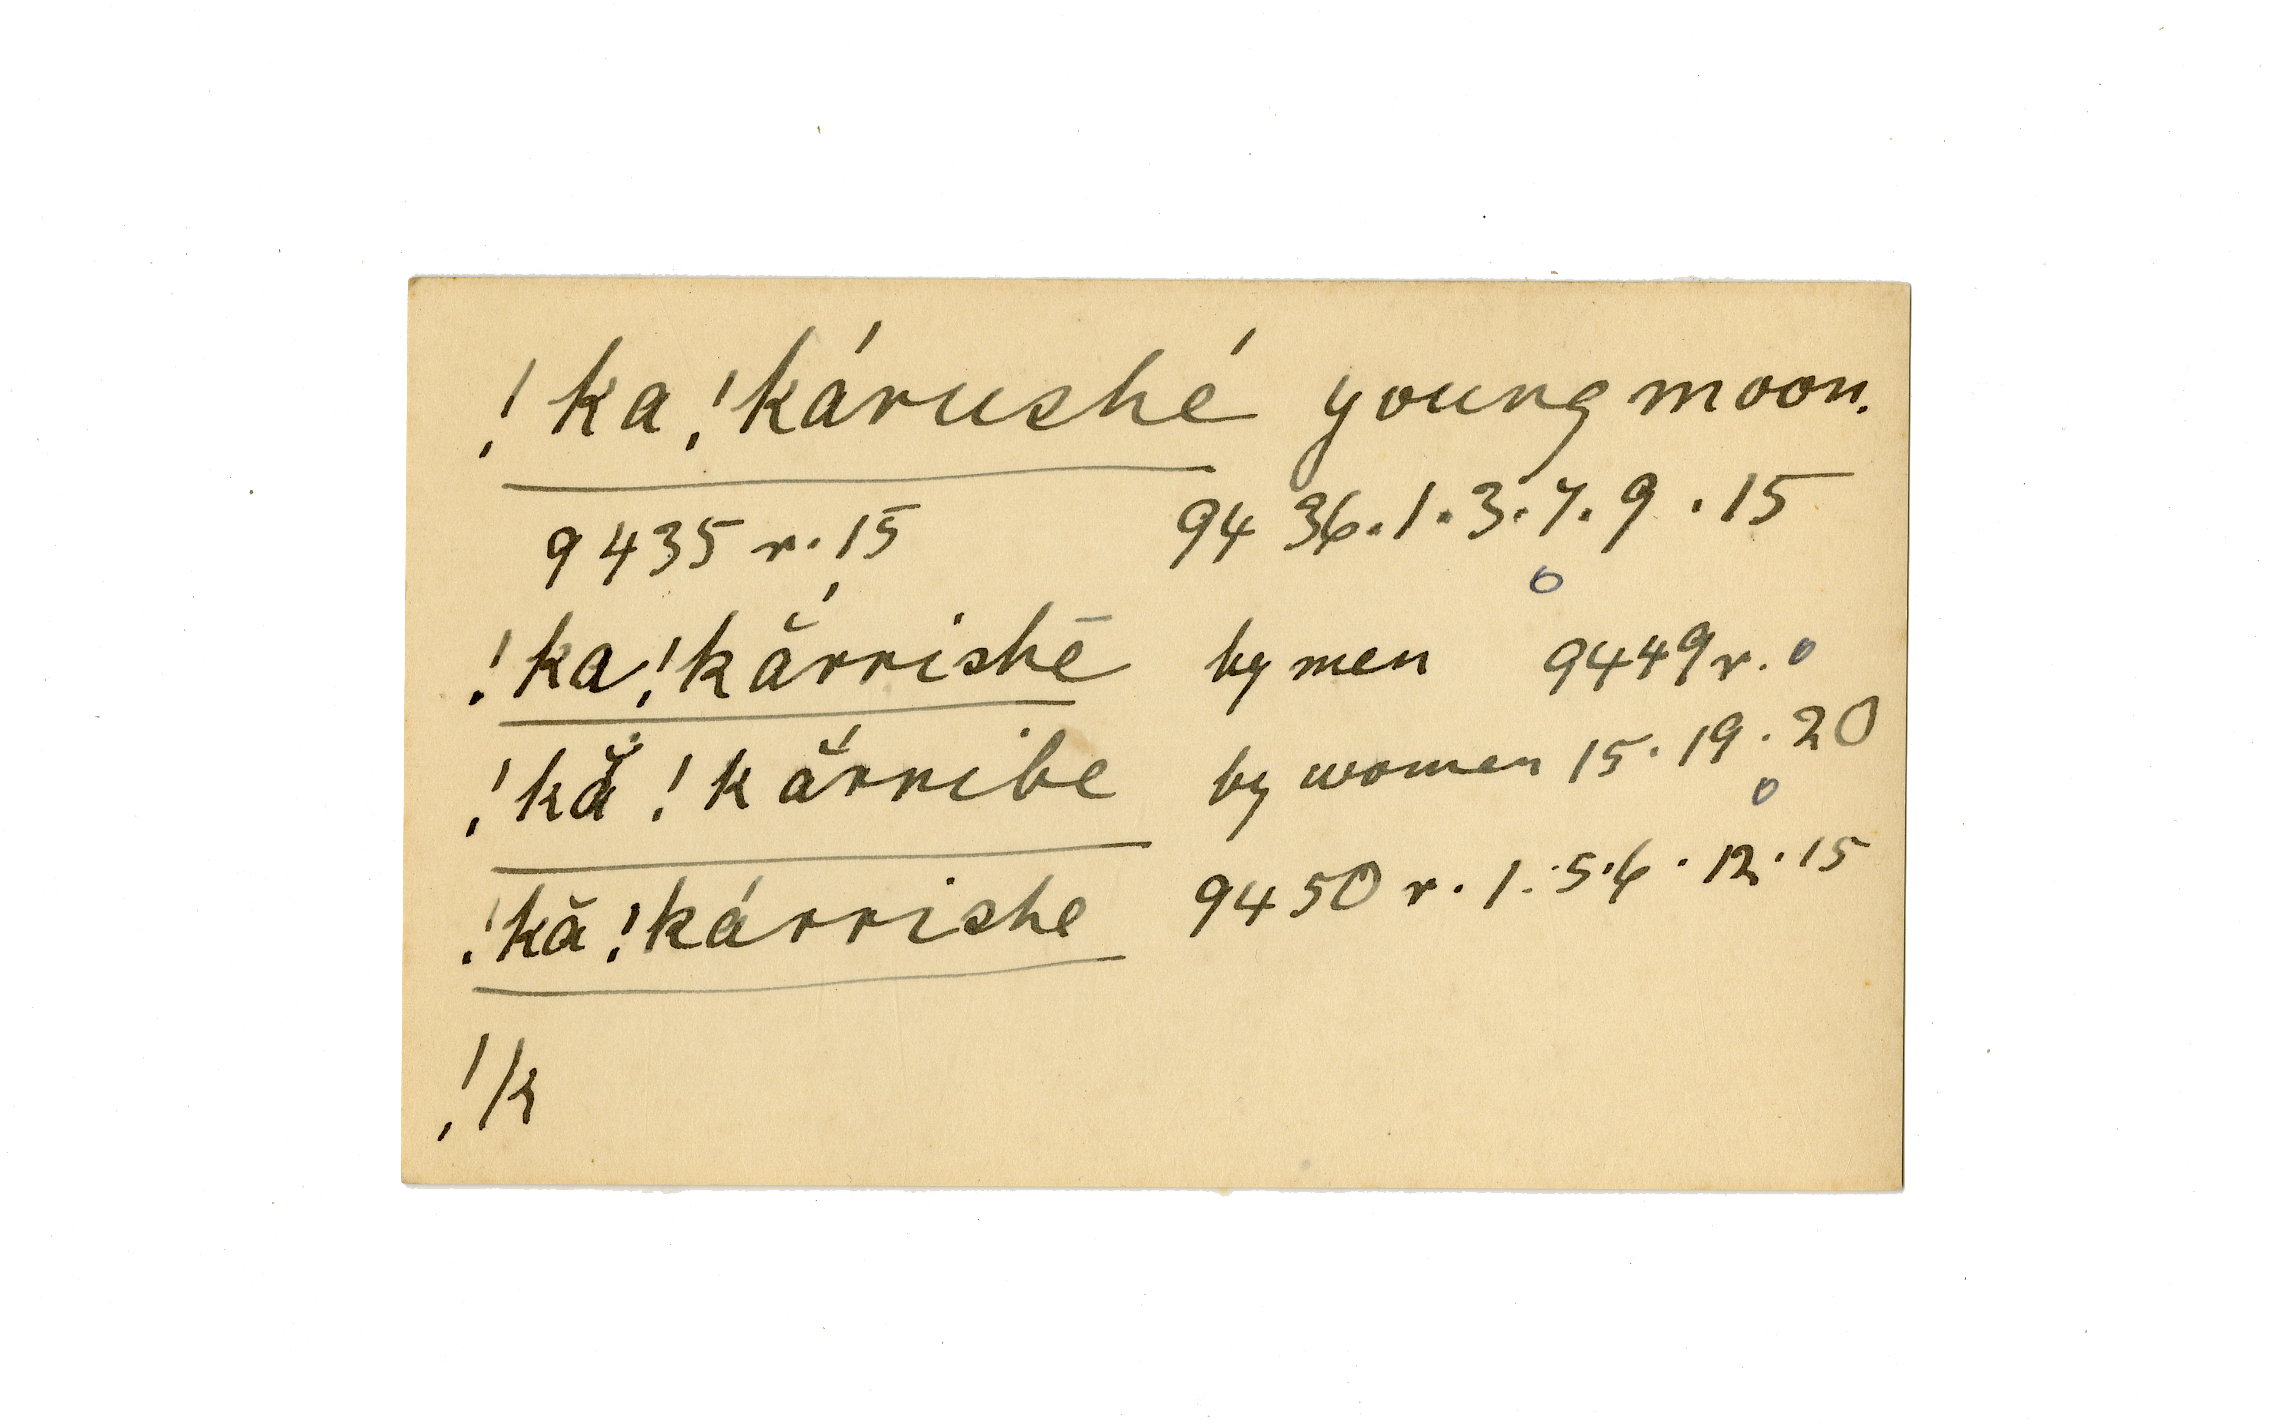 !ka!kárushé young moon.
9435 r. 15 9436. 1. 3. 7. 9. 15
!ka!kắrrishē by men 9449 r.
!kă!kắrribe by women 15. 19. 20
!kă!kárrishe 9450 r. 1. 5. 6. 12. 15
!k